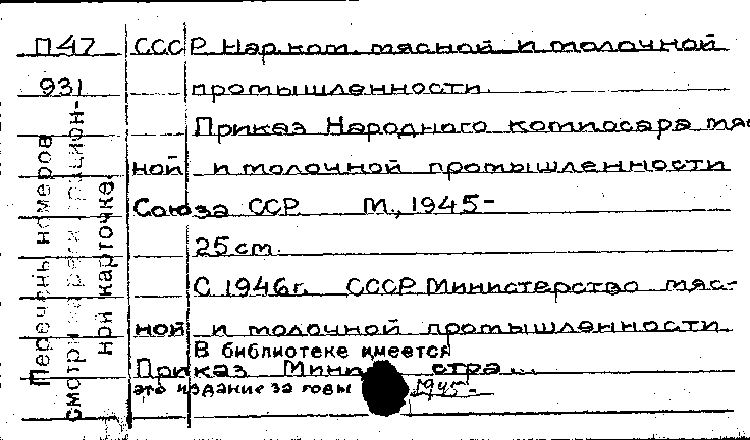 П47 СССР Нар.ком. мясной и молочной
931 промышленности.
Приказ Народного комиссара мяс
ной и молочной промышленности
Союза ССР. М., 1945-
25 см.
С 1946г. СССР Министерство мяс-
ной и молочной промышленности.
В библиотеке имеется
Приказ Мини стра...
это издание за годы 1945-
Перечень номеров
смотри на регистрацион-
ной карточке.